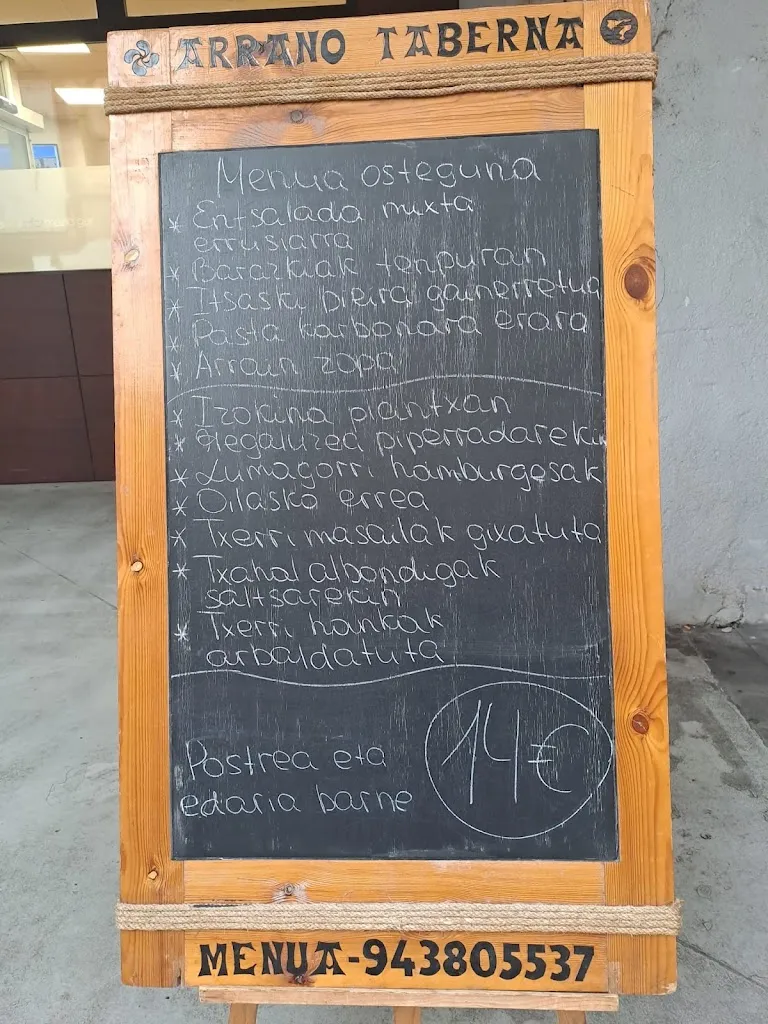 ARRANO TABERNA
Menua osteguna
* Entsalada mixta
errusiarra
* Barazkiak tenpuran
* Itsaski bieira gainerretua
* Pasta karbonara erara
* Arrain zopa
* Izokina plantxan
* Hegaluzea piperradarekin
* Lumagorri hamburgesak
* Oilasko errea
* Txerri masailak gixatuta
* Txahal albondigak
saltsarekin
* Txerri hankak
arbaldatuta
Postrea eta
edaria barne
14€
MENUA-943805537